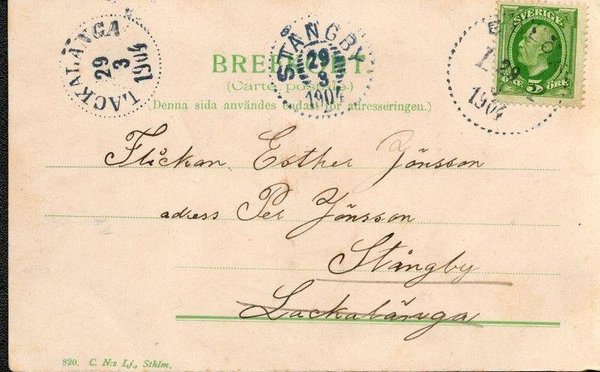 LACKALÄNGA
29
3
1904
STÅNGBY
29
3
1904
29
1904
SVERIGE
5 ÖRE 5
BREFKORT.
(Carte postale.)
(Denna sida användes endast för adresseringen.)
Flickan Esther Jönsson
adress Per Jönsson
Stångby
Lackalänga
820. C. N:s Lj., Sthlm.